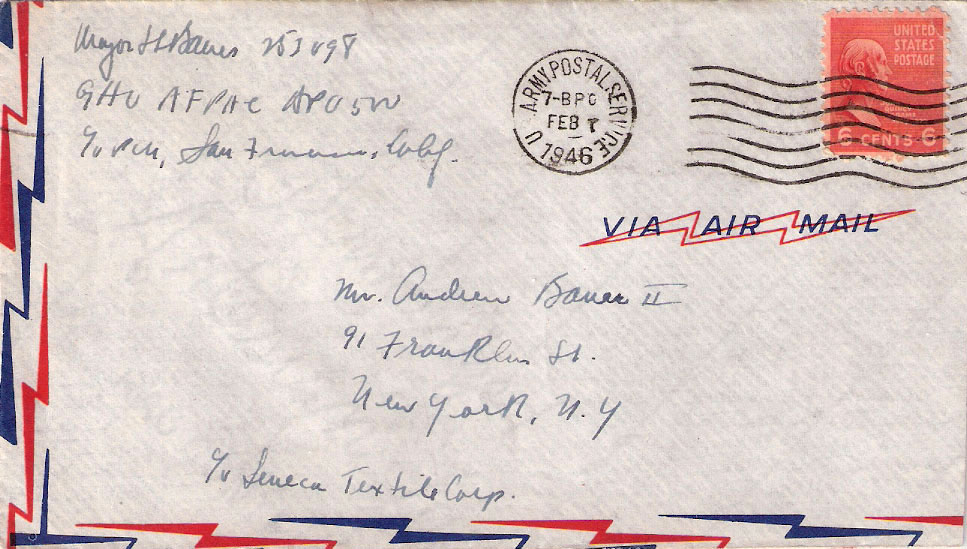 Major Bauer
GHQ AFPAC APO 500
c/o PM, San Francisco, Calif.
U ARMY.POSTAL.SERVICE
7-BPO
FEB 7
1946
UNITED
STATES
POSTAGE
6 CENTS 6
VIA AIR MAIL
Mr. Andrew Bauer II
91 Franklin St.
New York, N.Y
c/o Seneca Textile Corp.